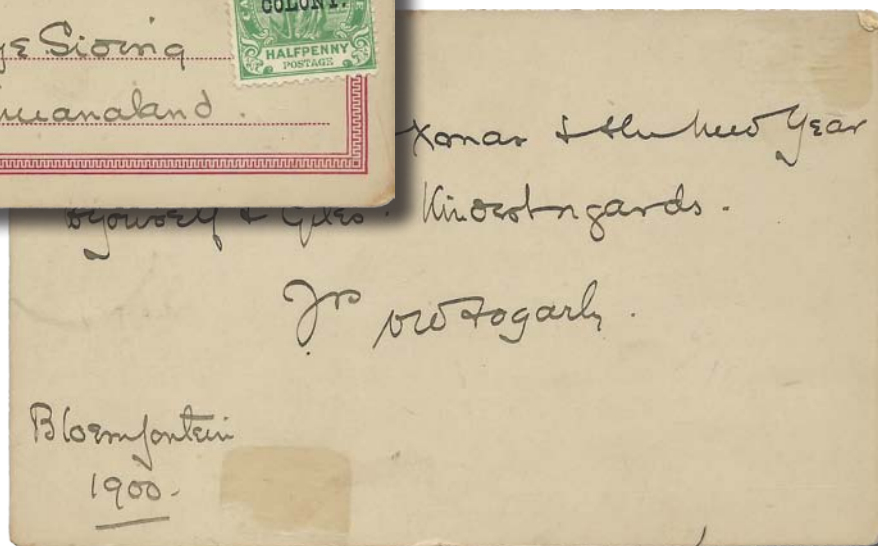 COLONY.
HALFPENNY
POSTAGE
Siding
Xmas & the New Year
& Giles. Kindest regards.
Yrs
Bloemfontein
1900.